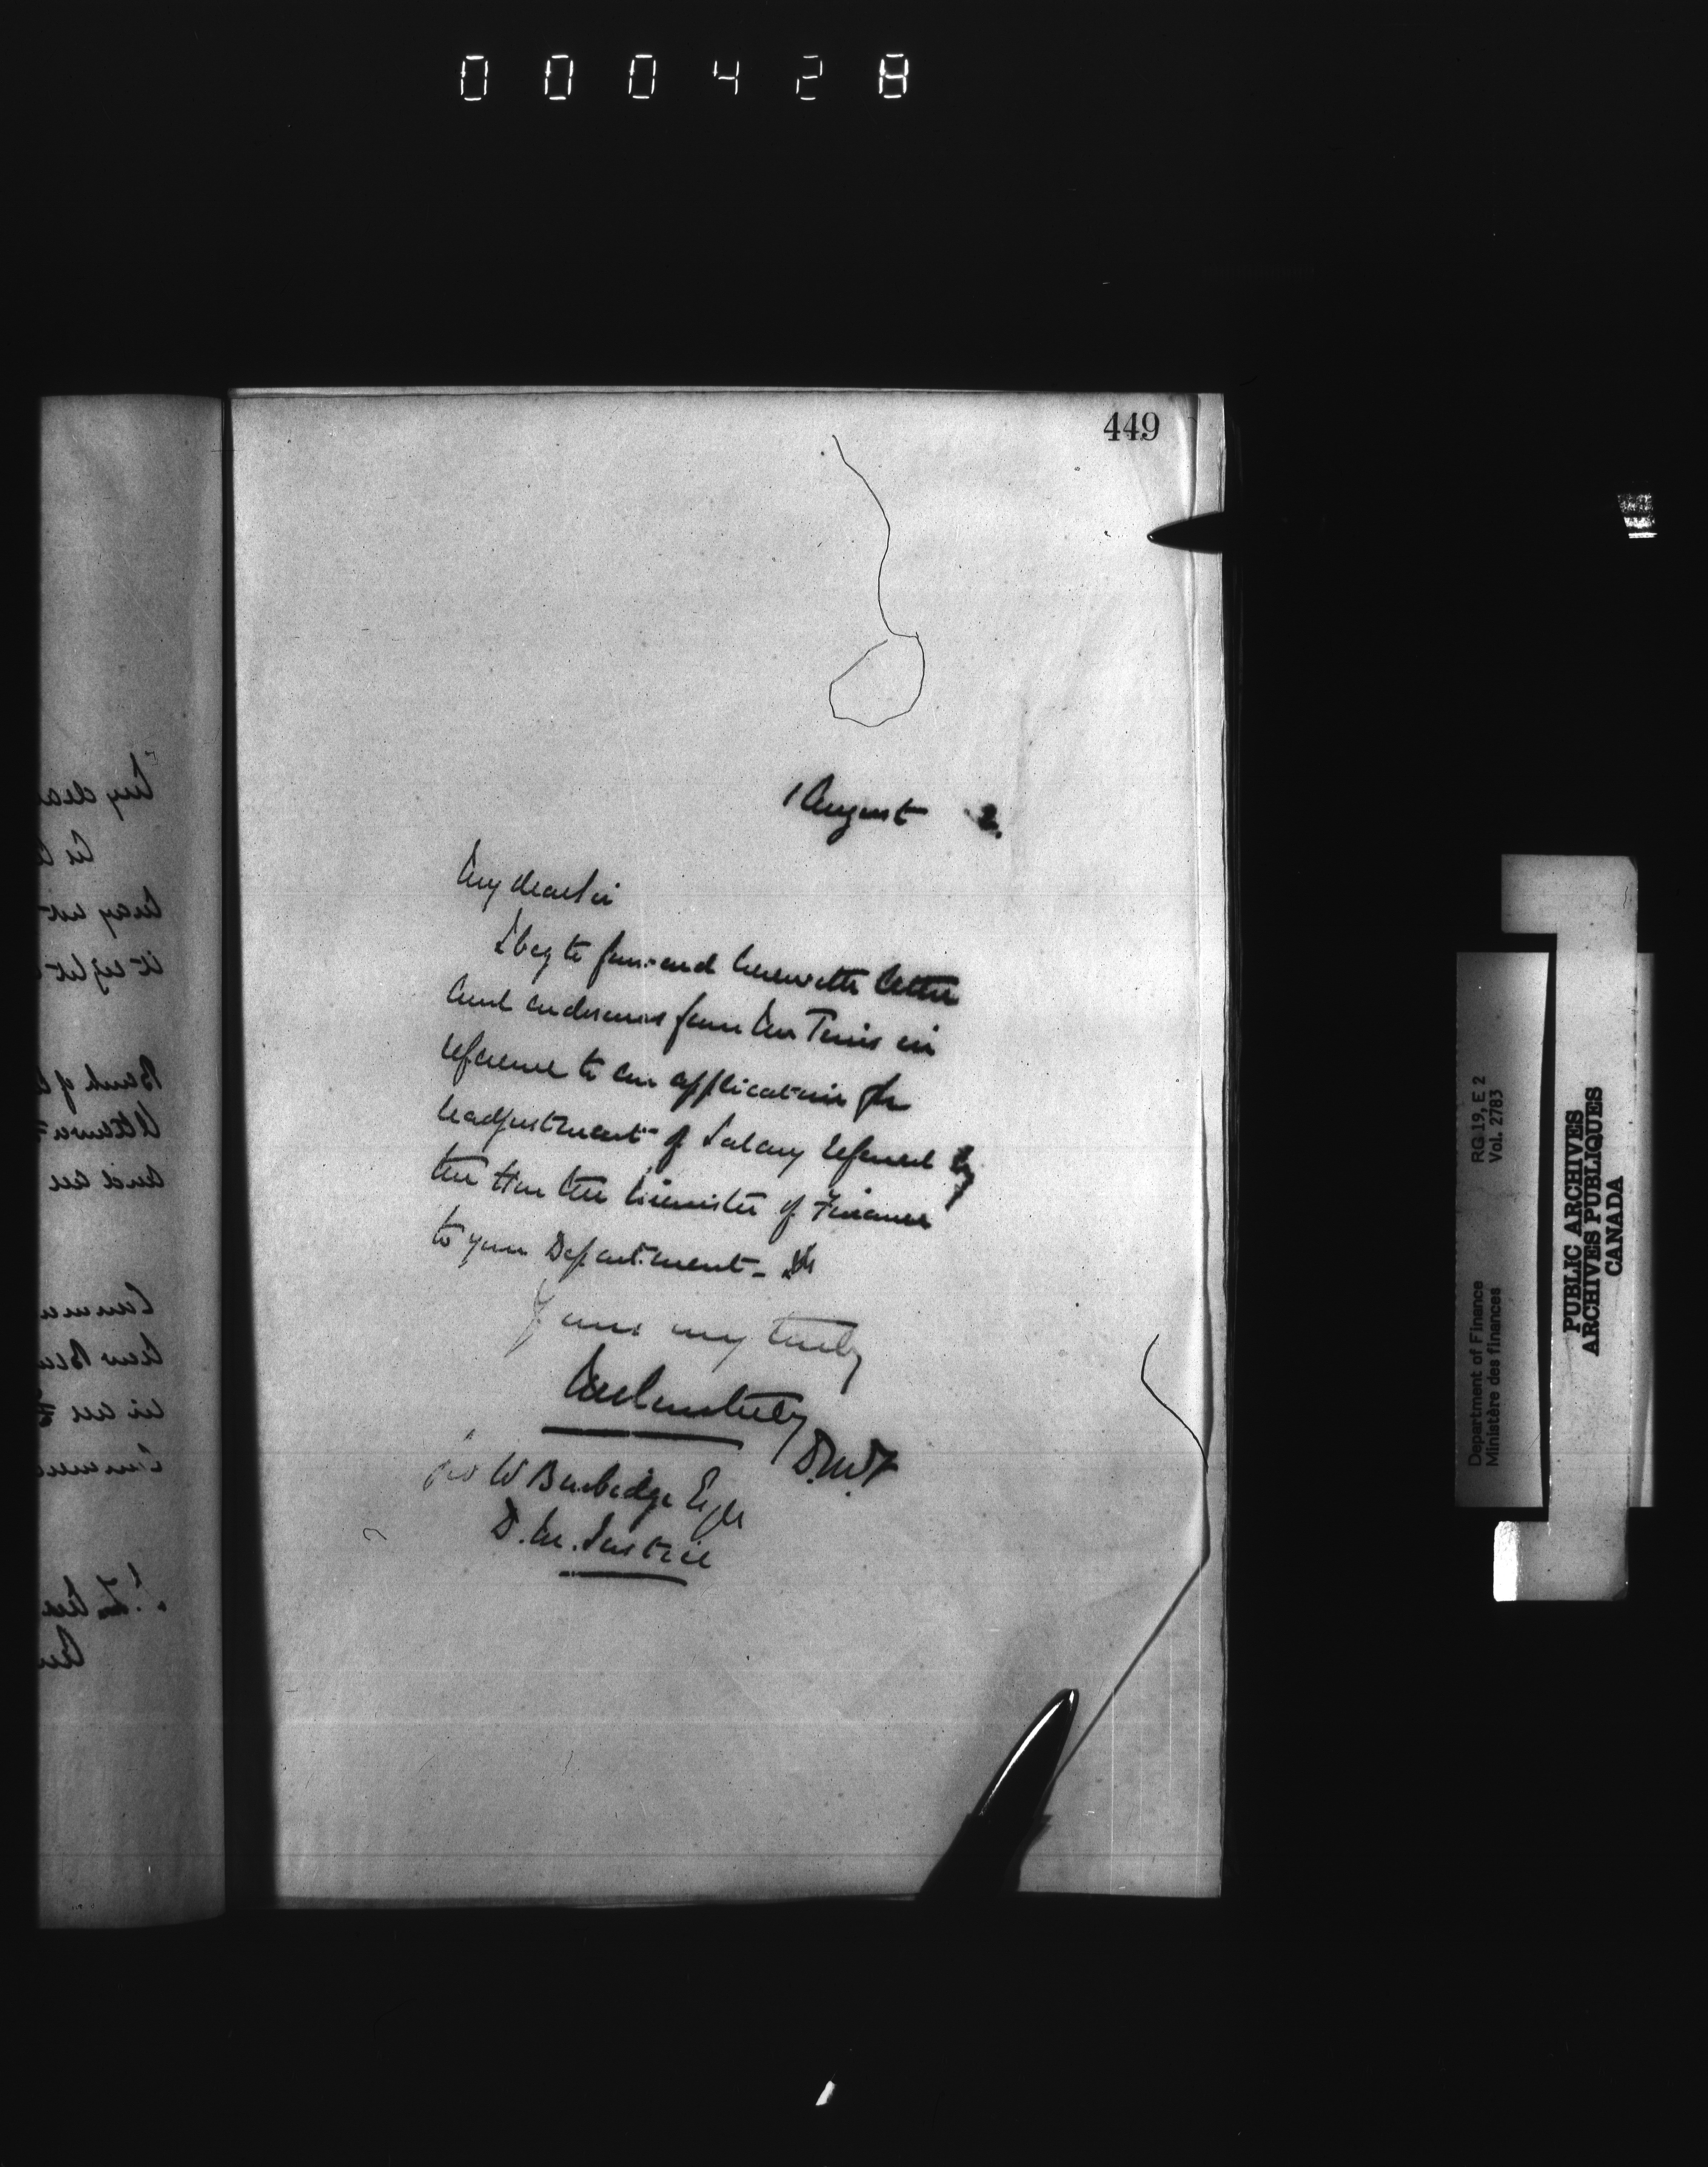 000428
449
1 August 2.
My dear Sir
I beg to forward herewith letter
and endorsures from Mr Tims in
reference to an application for
readjustment of Salary referred by
the Hon the Minister of Finance
to your Department
Yours very truly
JMCourtney
D.M.F
Geo W Burbidge Esqre
D. M. Justice
My dea
may not
Bank of
Ottawa
and an
New Bru
in an
RG 19, E 2
Vol. 2783
Department of Finance
Ministère des finances
PUBLIC ARCHIVES
ARCHIVES PUBLIQUES
CANADA